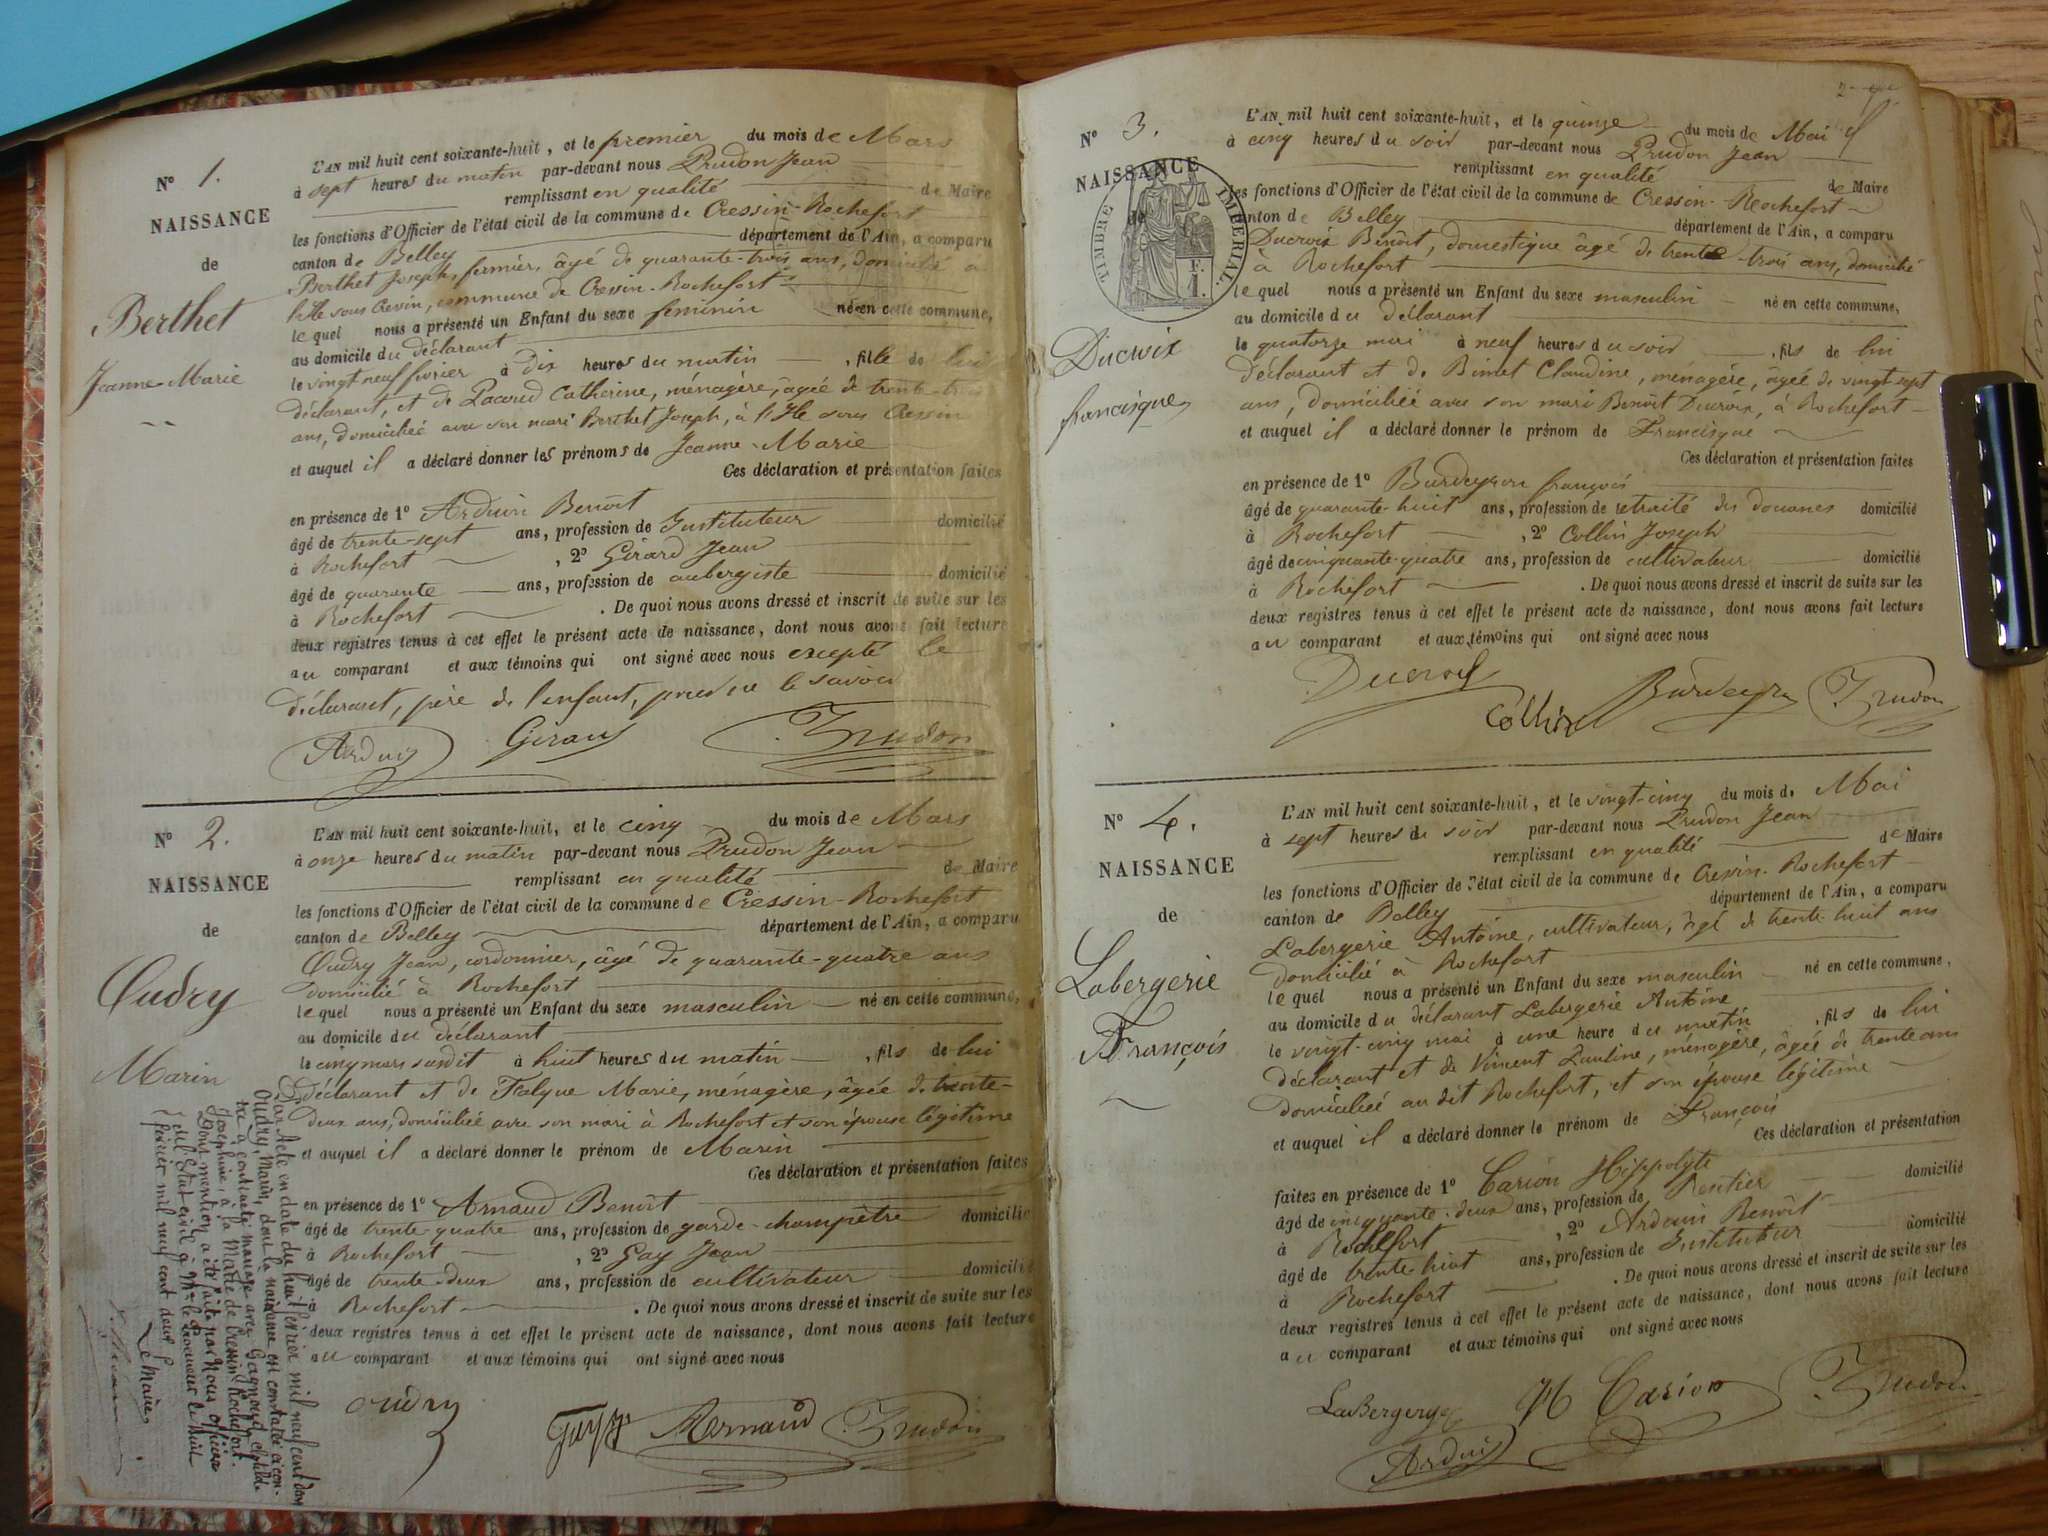 N° 1.
NAISSANCE
de
Berthet
Jeanne-Marie
L'AN mil huit cent soixante-huit, et le premier du mois de Mars
à sept heures du matin par-devant nous Prudon Jean
remplissant en qualité de Maire
les fonctions d'Officier de l'état civil de la commune de Cressin-Rochefort
canton de Belley département de l'Ain, a comparu
Berthet Joseph, fermier, âgé de quarante-trois ans, domicilié à
l'Ile sous Cressin, commune de Cressin-Rochefort
le quel nous a présenté un Enfant du sexe féminin né en cette commune,
au domicile du déclarant
le vingt neuf février à dix heures du matin, fille de lui
déclarant, et de Catherine, ménagère, âgée de trente-trois
ans, domiciliée avec son mari Berthet Joseph, à l'Ile sous Cressin
et auquel il a déclaré donner les prénoms de Jeanne-Marie
Ces déclaration et présentation faites
en présence de 1° Arduin Benoît
âgé de trente-sept ans, profession de Instituteur domicilié
à Rochefort, 2° Girard Jean
âgé de quarante ans, profession de aubergiste domicilié
à Rochefort. De quoi nous avons dressé et inscrit de suite sur les
deux registres tenus à cet effet le présent acte de naissance, dont nous avons fait lecture
au comparant et aux témoins qui ont signé avec nous excepté le
déclarant, père de l'enfant, pour ne le savoir
Arduin Girard Prudon
N° 2.
NAISSANCE
de
Oudry
Marin
L'AN mil huit cent soixante-huit, et le cinq du mois de Mars
à onze heures du matin par-devant nous Prudon Jean
remplissant en qualité de Maire
les fonctions d'Officier de l'état civil de la commune de Cressin-Rochefort
canton de Belley département de l'Ain, a comparu
Oudry Jean, cordonnier, âgé de quarante-quatre ans
domicilié à Rochefort
le quel nous a présenté un Enfant du sexe masculin né en cette commune,
au domicile du déclarant
le cinq mars susdit à huit heures du matin, fils de lui
déclarant et de Falque Marie, ménagère, âgée de trente-
deux ans, domiciliée avec son mari à Rochefort et son épouse légitime
et auquel il a déclaré donner le prénom de Marin
Ces déclaration et présentation faites
en présence de 1° Arnaud Benoît
âgé de trente-quatre ans, profession de garde-champêtre domicilié
à Rochefort, 2° Gay Jean
âgé de trente-deux ans, profession de cultivateur domicilié
à Rochefort. De quoi nous avons dressé et inscrit de suite sur les
deux registres tenus à cet effet le présent acte de naissance, dont nous avons fait lecture
au comparant et aux témoins qui ont signé avec nous
oudry Gay Arnaud Prudon
Par Acte en date du huit février mil neuf cent deux
Oudry, Marin, dont la naissance est constatée ci-con-
tre a contracté mariage avec Gagnoud Clotilde
Joséphine, à la Mairie de Cressin-Rochefort.
Dont mention a été faite par Nous officier
de l'Etat-civil à Mr le Procureur le huit
février mil neuf cent deux
Le Maire,
N° 3.
NAISSANCE
de
TIMBRE IMPÉRIAL.
F.
1.
Ducroix
francisque
L'AN mil huit cent soixante-huit, et le quinze du mois de Mai
à cinq heures du soir par-devant nous Prudon Jean
remplissant en qualité de Maire
les fonctions d'Officier de l'état civil de la commune de Cressin-Rochefort
canton de Belley département de l'Ain, a comparu
Ducroix Benoît, domestique âgé de trente-trois ans, domicilié
à Rochefort
le quel nous a présenté un Enfant du sexe masculin né en cette commune,
au domicile du déclarant
le quatorze mai à neuf heures du soir, fils de lui
déclarant et de Binet Claudine, ménagère, âgée de vingt-sept
ans, domiciliée avec son mari Benoît Ducroix, à Rochefort
et auquel il a déclaré donner le prénom de Francisque
Ces déclaration et présentation faites
en présence de 1° Burdeyron françois
âgé de quarante-huit ans, profession de retraité des douanes domicilié
à Rochefort, 2° Collin Joseph
âgé de cinquante-quatre ans, profession de cultivateur domicilié
à Rochefort. De quoi nous avons dressé et inscrit de suite sur les
deux registres tenus à cet effet le présent acte de naissance, dont nous avons fait lecture
au comparant et aux témoins qui ont signé avec nous
Ducroix Collin Burdeyron Prudon
N° 4.
NAISSANCE
de
Labergerie
François
L'AN mil huit cent soixante-huit, et le vingt-cinq du mois de Mai
à sept heures du soir par-devant nous Prudon Jean
remplissant en qualité de Maire
les fonctions d'Officier de l'état civil de la commune de Cressin-Rochefort
canton de Belley département de l'Ain, a comparu
Labergerie Antoine, cultivateur, âgé de trente-huit ans
domicilié à Rochefort
le quel nous a présenté un Enfant du sexe masculin né en cette commune,
au domicile du déclarant Labergerie Antoine
le vingt-cinq mai à une heure du matin, fils de lui
déclarant et de Vincent Pauline, ménagère, âgée de trente ans
domiciliée au dit Rochefort, et son épouse légitime
et auquel il a déclaré donner le prénom de François
Ces déclaration et présentation
faites en présence de 1° Carion Hippolyte
âgé de cinquante-deux ans, profession de Rentier domicilié
à Rochefort, 2° Arduin Benoît
âgé de trente huit ans, profession de Instituteur domicilié
à Rochefort. De quoi nous avons dressé et inscrit de suite sur les
deux registres tenus à cet effet le présent acte de naissance, dont nous avons fait lecture
au comparant et aux témoins qui ont signé avec nous
LaBergerye H Carion Prudon
Arduin